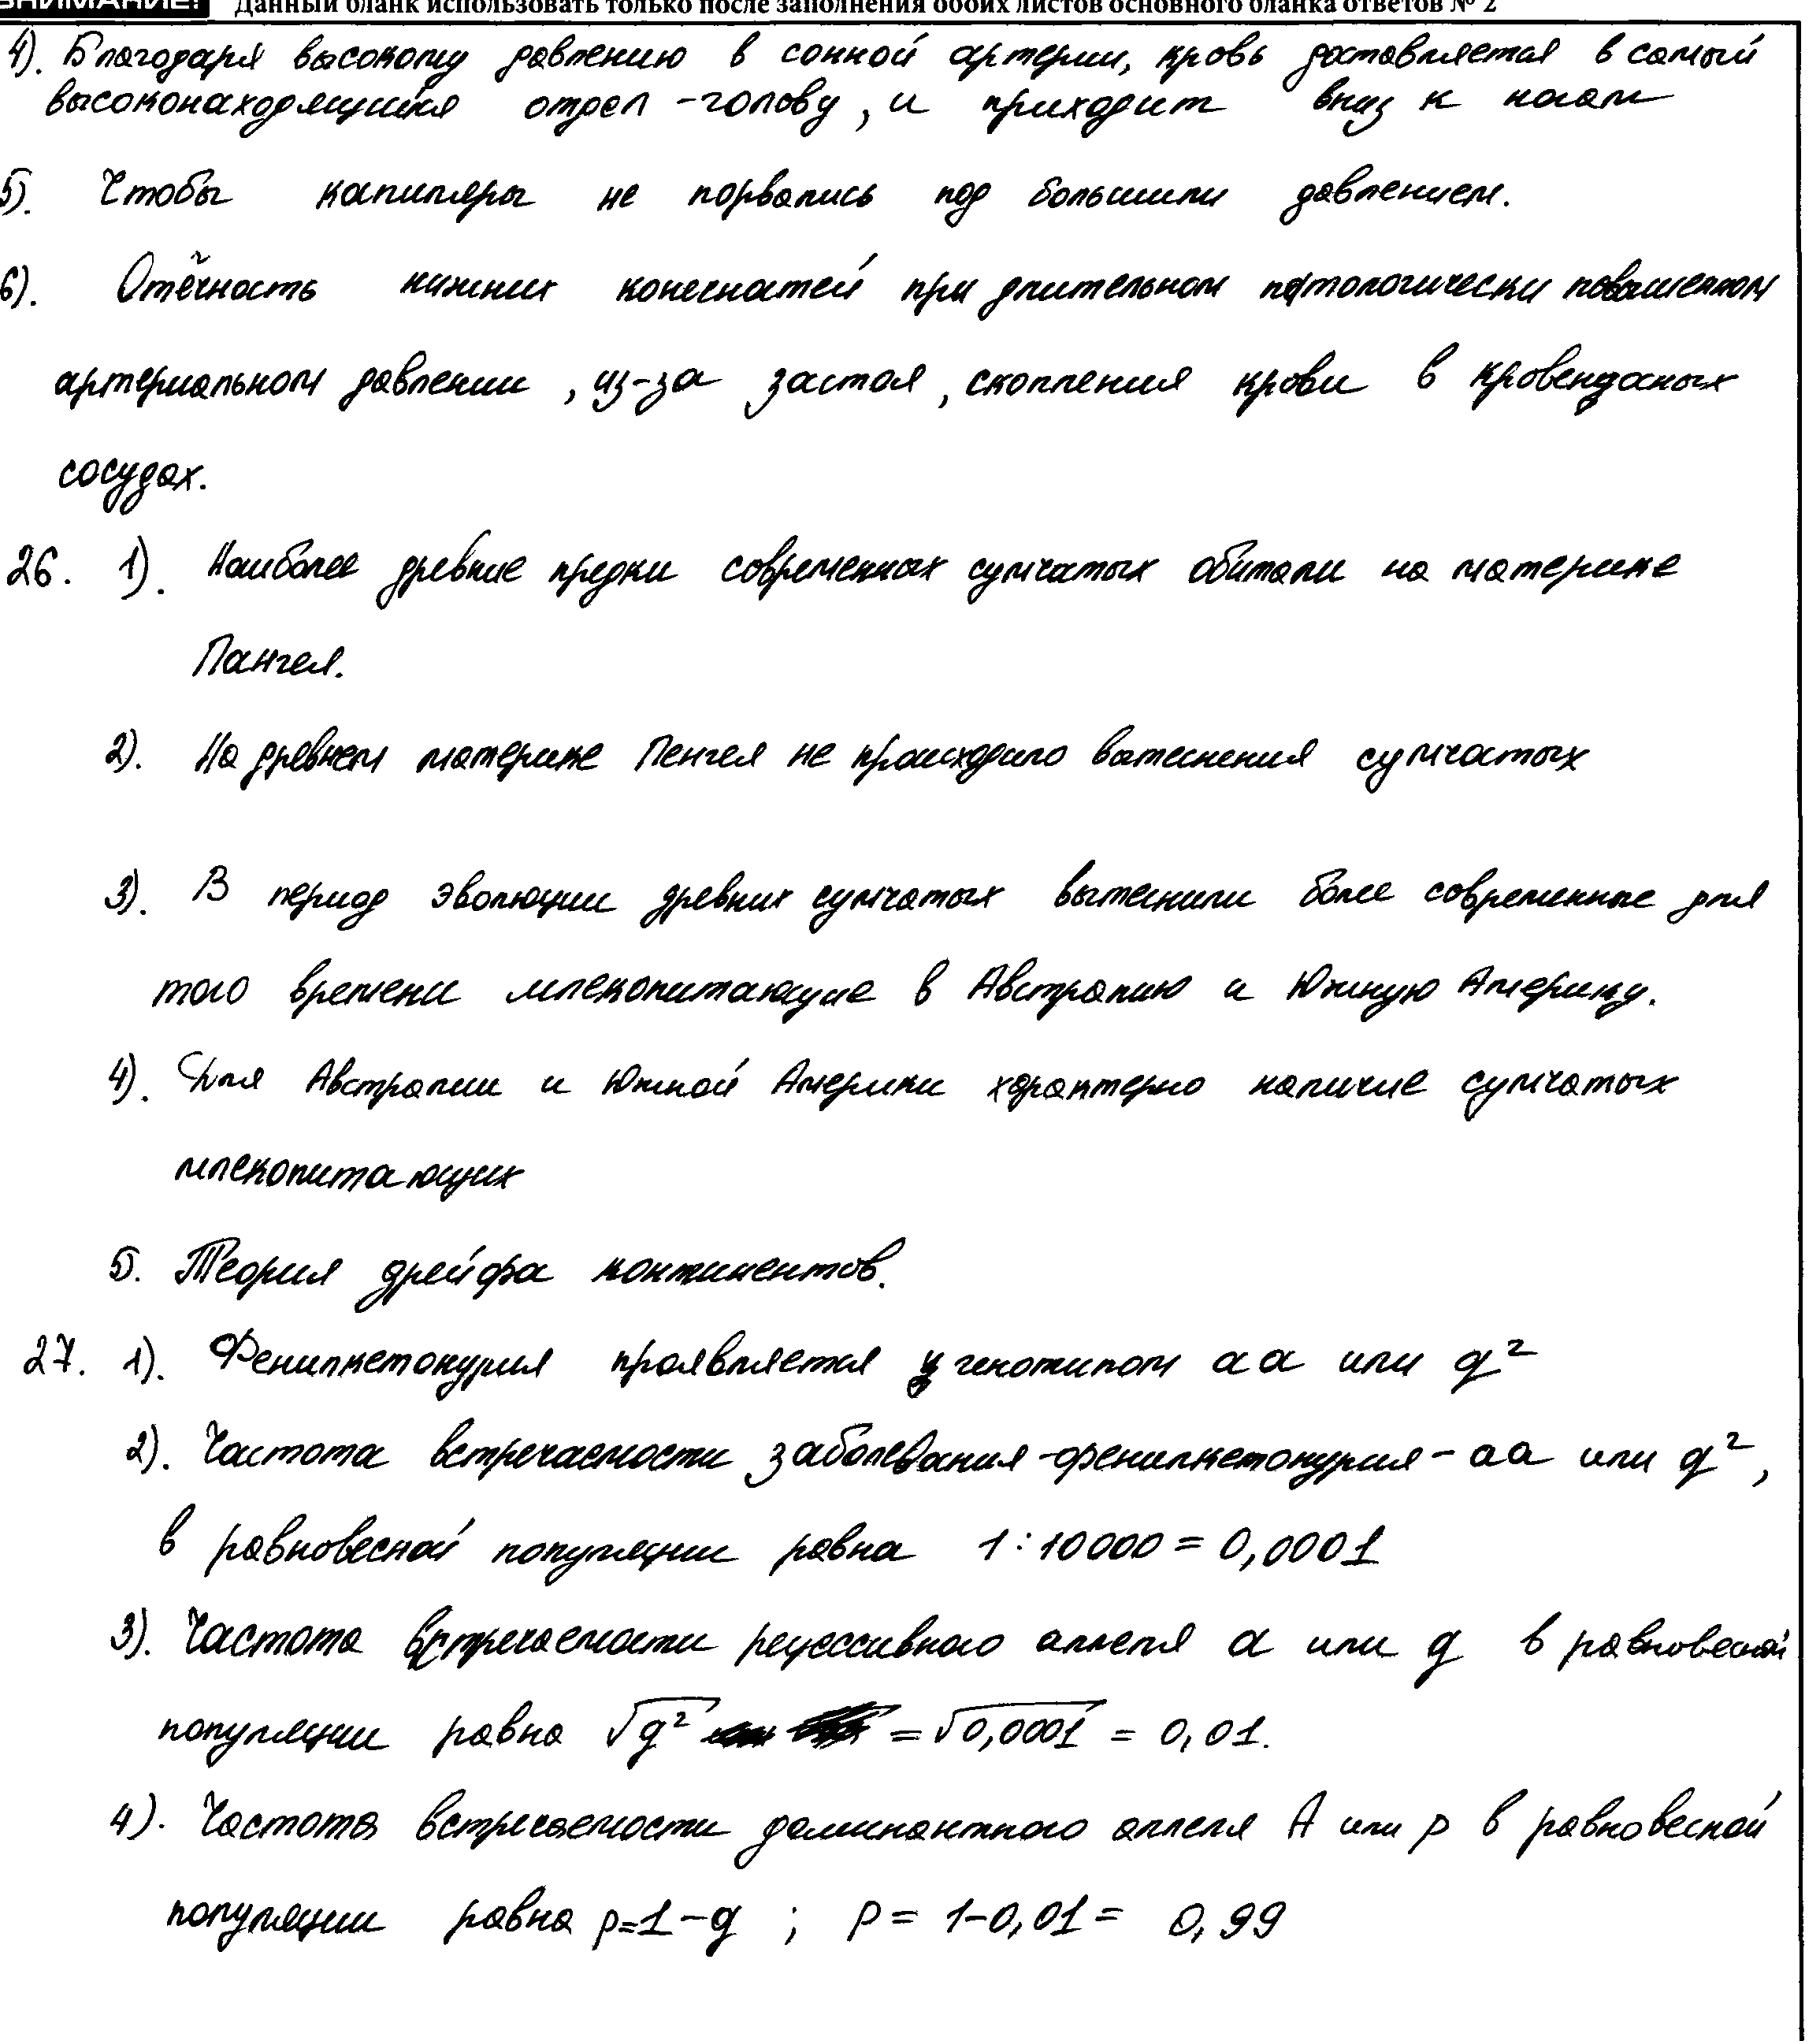 ВНИМАНИЕ! Данный бланк использовать только после заполнения обоих листов основного бланка ответов № 2
4). Благодаря высокому давлению в сонной артерии, кровь доставляется в самый
высоконаходящийся отдел - голову, и приходит вниз к ногам
5). Чтобы капилляры не порвались под большим давлением.
6). Отёчность нижних конечностей при длительном патологически повышенном
артериальном давлении, из-за застоя, скопления крови в кровеносных
сосудах.
26. 1). Наиболее древние предки современных сумчатых обитали на материке
Пангея.
2). На древнем материке Пенгея не происходило вытеснения сумчатых
3). В период эволюции древних сумчатых вытеснили более современные для
того времени млекопитающие в Австралию и Южную Америку.
4). Для Австралии и Южной Америки характерно наличие сумчатых
млекопитающих
5. Теория дрейфа континентов.
27. 1). Фенилкетонурия проявляется у генотипом aa или q²
2). Частота встречаемости заболевания - фенилкетонурия - aa или q²,
в равновесной популяции равна 1:10000 = 0,0001
3). Частота встречаемости рецессивного аллеля a или q в равновесной
популяции равна √q² = √0,0001 = 0,01.
4). Частота встречаемости доминантного аллеля A или p в равновесной
популяции равна p=1-q ; p = 1-0,01 = 0,99